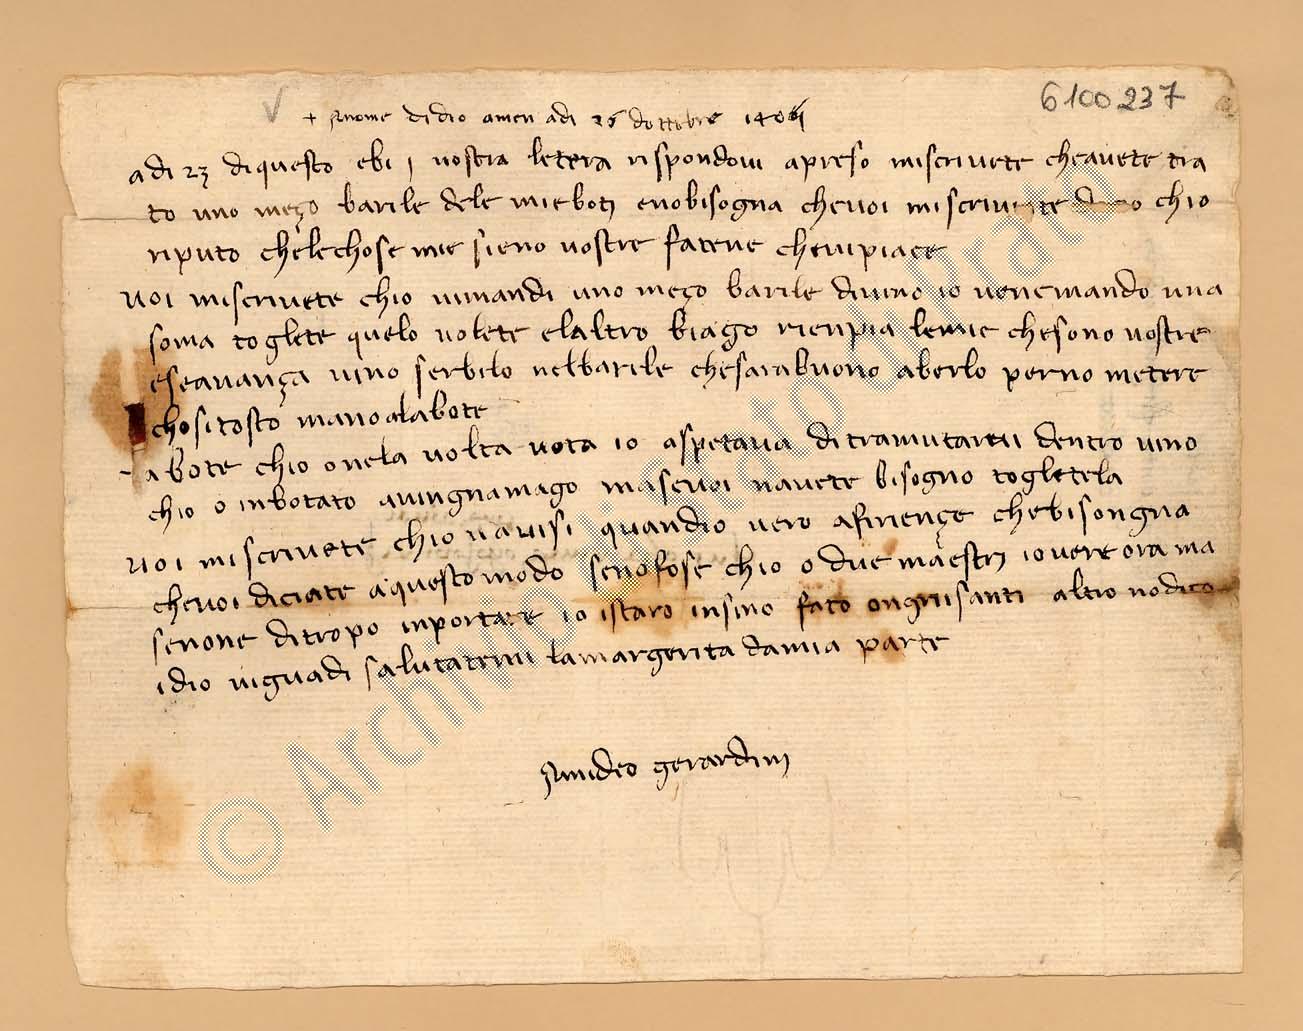 6100237
+ Innome didio amen adi 26 dottobre
adi 23 diquesto ebi j vostra letera rispondovi apreso miscrivete cheavete tra
to uno meço barile dele mieboti enobisogna chevoi miscrivete chio
riputo chelechose mie sieno vostre fatene chemipiace
voi miscrivete chio vimandi uno meço barile divino io venemando una
soma toglete quelo volete elaltro biago rienpia lemie chesono vostre
eseavança vino serbilo nelbarile chesarabuono aberlo perno metere
chositosto mano alabote
abote chio onela volta vota io aspetava ditramutarvi dentro vino
chio o inbotato avingnamago masevoi navete bisogno togletela
voi miscrivete chio navisi quandio vero afirençe chebisongna
chevoi diciate aquesto modo senofose chio o due maestri iovere ora ma
senone ditropo inportare io istaro insino fato ongniisanti altro nodico
idio viguadi salutatemi lamargerita damia parte
Amideo gerardini
© Archivio di Stato di Prato